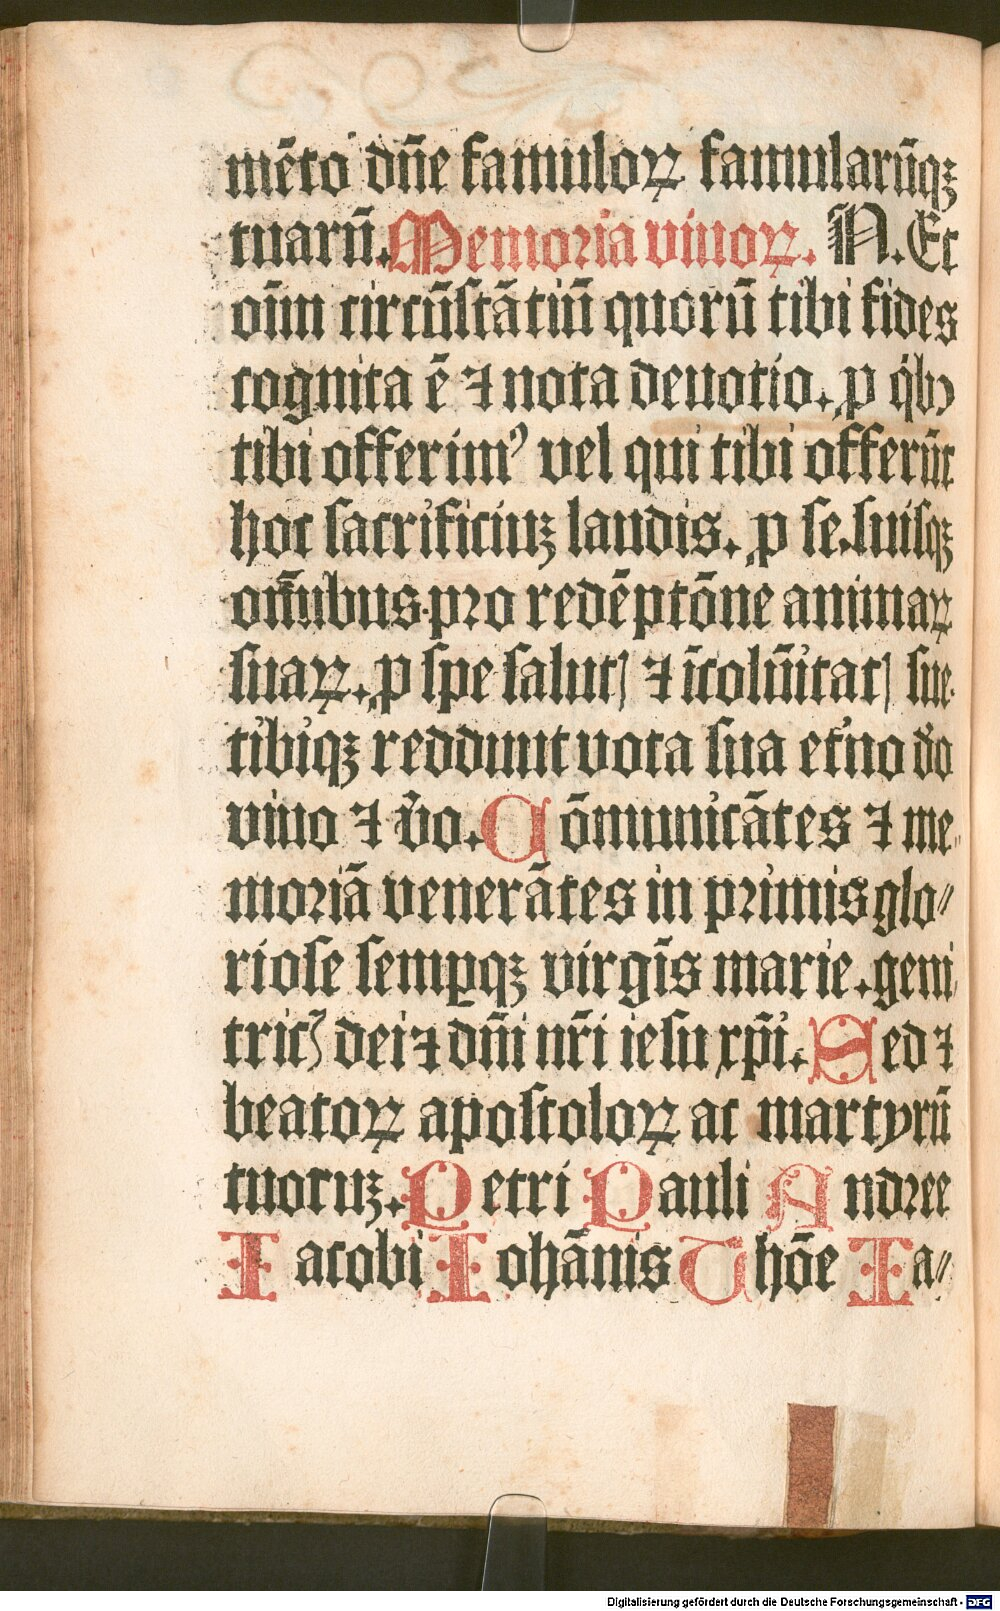 mēto dn̄e famuloꝝ famularūqꝫ
tuarū. Memoria viuoꝝ. N. Et
oīm circūstātiū quorū tibi fides
cognita ē ⁊ nota deuotio. ꝓ qͥbꝰ
tibi offerimꝰ vel qui tibi offerūt
hoc sacrificiuꝫ laudis. ꝓ se. suisqꝫ
om̄ibus. pro redēptōne animaꝝ
suaꝝ. ꝓ spe salutꝭ ⁊ īcolūitatꝭ sue.
tibiqꝫ reddunt vota sua et͛no do
viuo ⁊ v͛o. Cōmunicātes ⁊ me
moriā venerātes in primis glo⸗
riose semꝑqꝫ virgīs marie. geni
tricꝭ dei ⁊ dn̄i nr̄i iesu xp̄i. Sed ⁊
beatoꝝ apostoloꝝ ac martyrū
tuoruꝫ. Petri Pauli Andree
Iacobi Iohānis Thōe Ia⸗
Digitalisierung gefördert durch die Deutsche Forschungsgemeinschaft - DFG